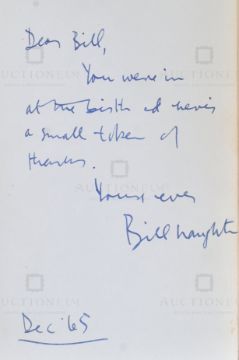 Dear Bill,
You were in
at the birth and here's
a small token of
thanks.
Yours ever
Bill Naughton
Dec '65